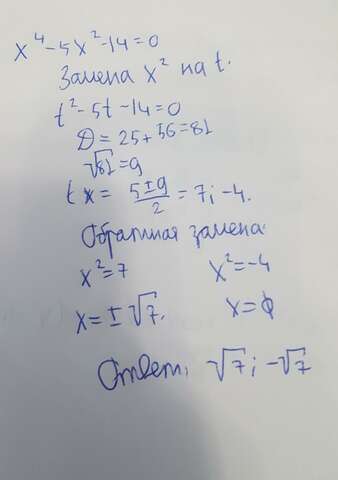 x⁴-5x²-14=0
Замена x² на t.
t²-5t-14=0
D=25+56=81
√81=9
t x = (5±9)/2 = 7; -4.
Обратная замена:
x²=7 x²=-4
x=±√7. x=ϕ
Ответ: √7; -√7